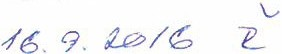 16. 9. 2016 ř